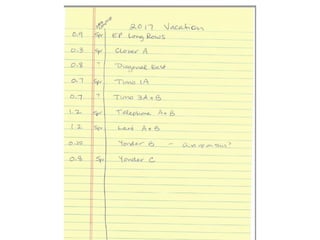 2017 Vacation
0.9 Spr EP Long Rows
0.3 Spr Clover A
0.8 ? Diagonal East
0.7 Spr Timo 1A
0.7 ? Timo 3A+B
1.2 Spr Telephone A+B
1.2 Spr A+B
Yonder B - this?
0.8 Spr Yonder C